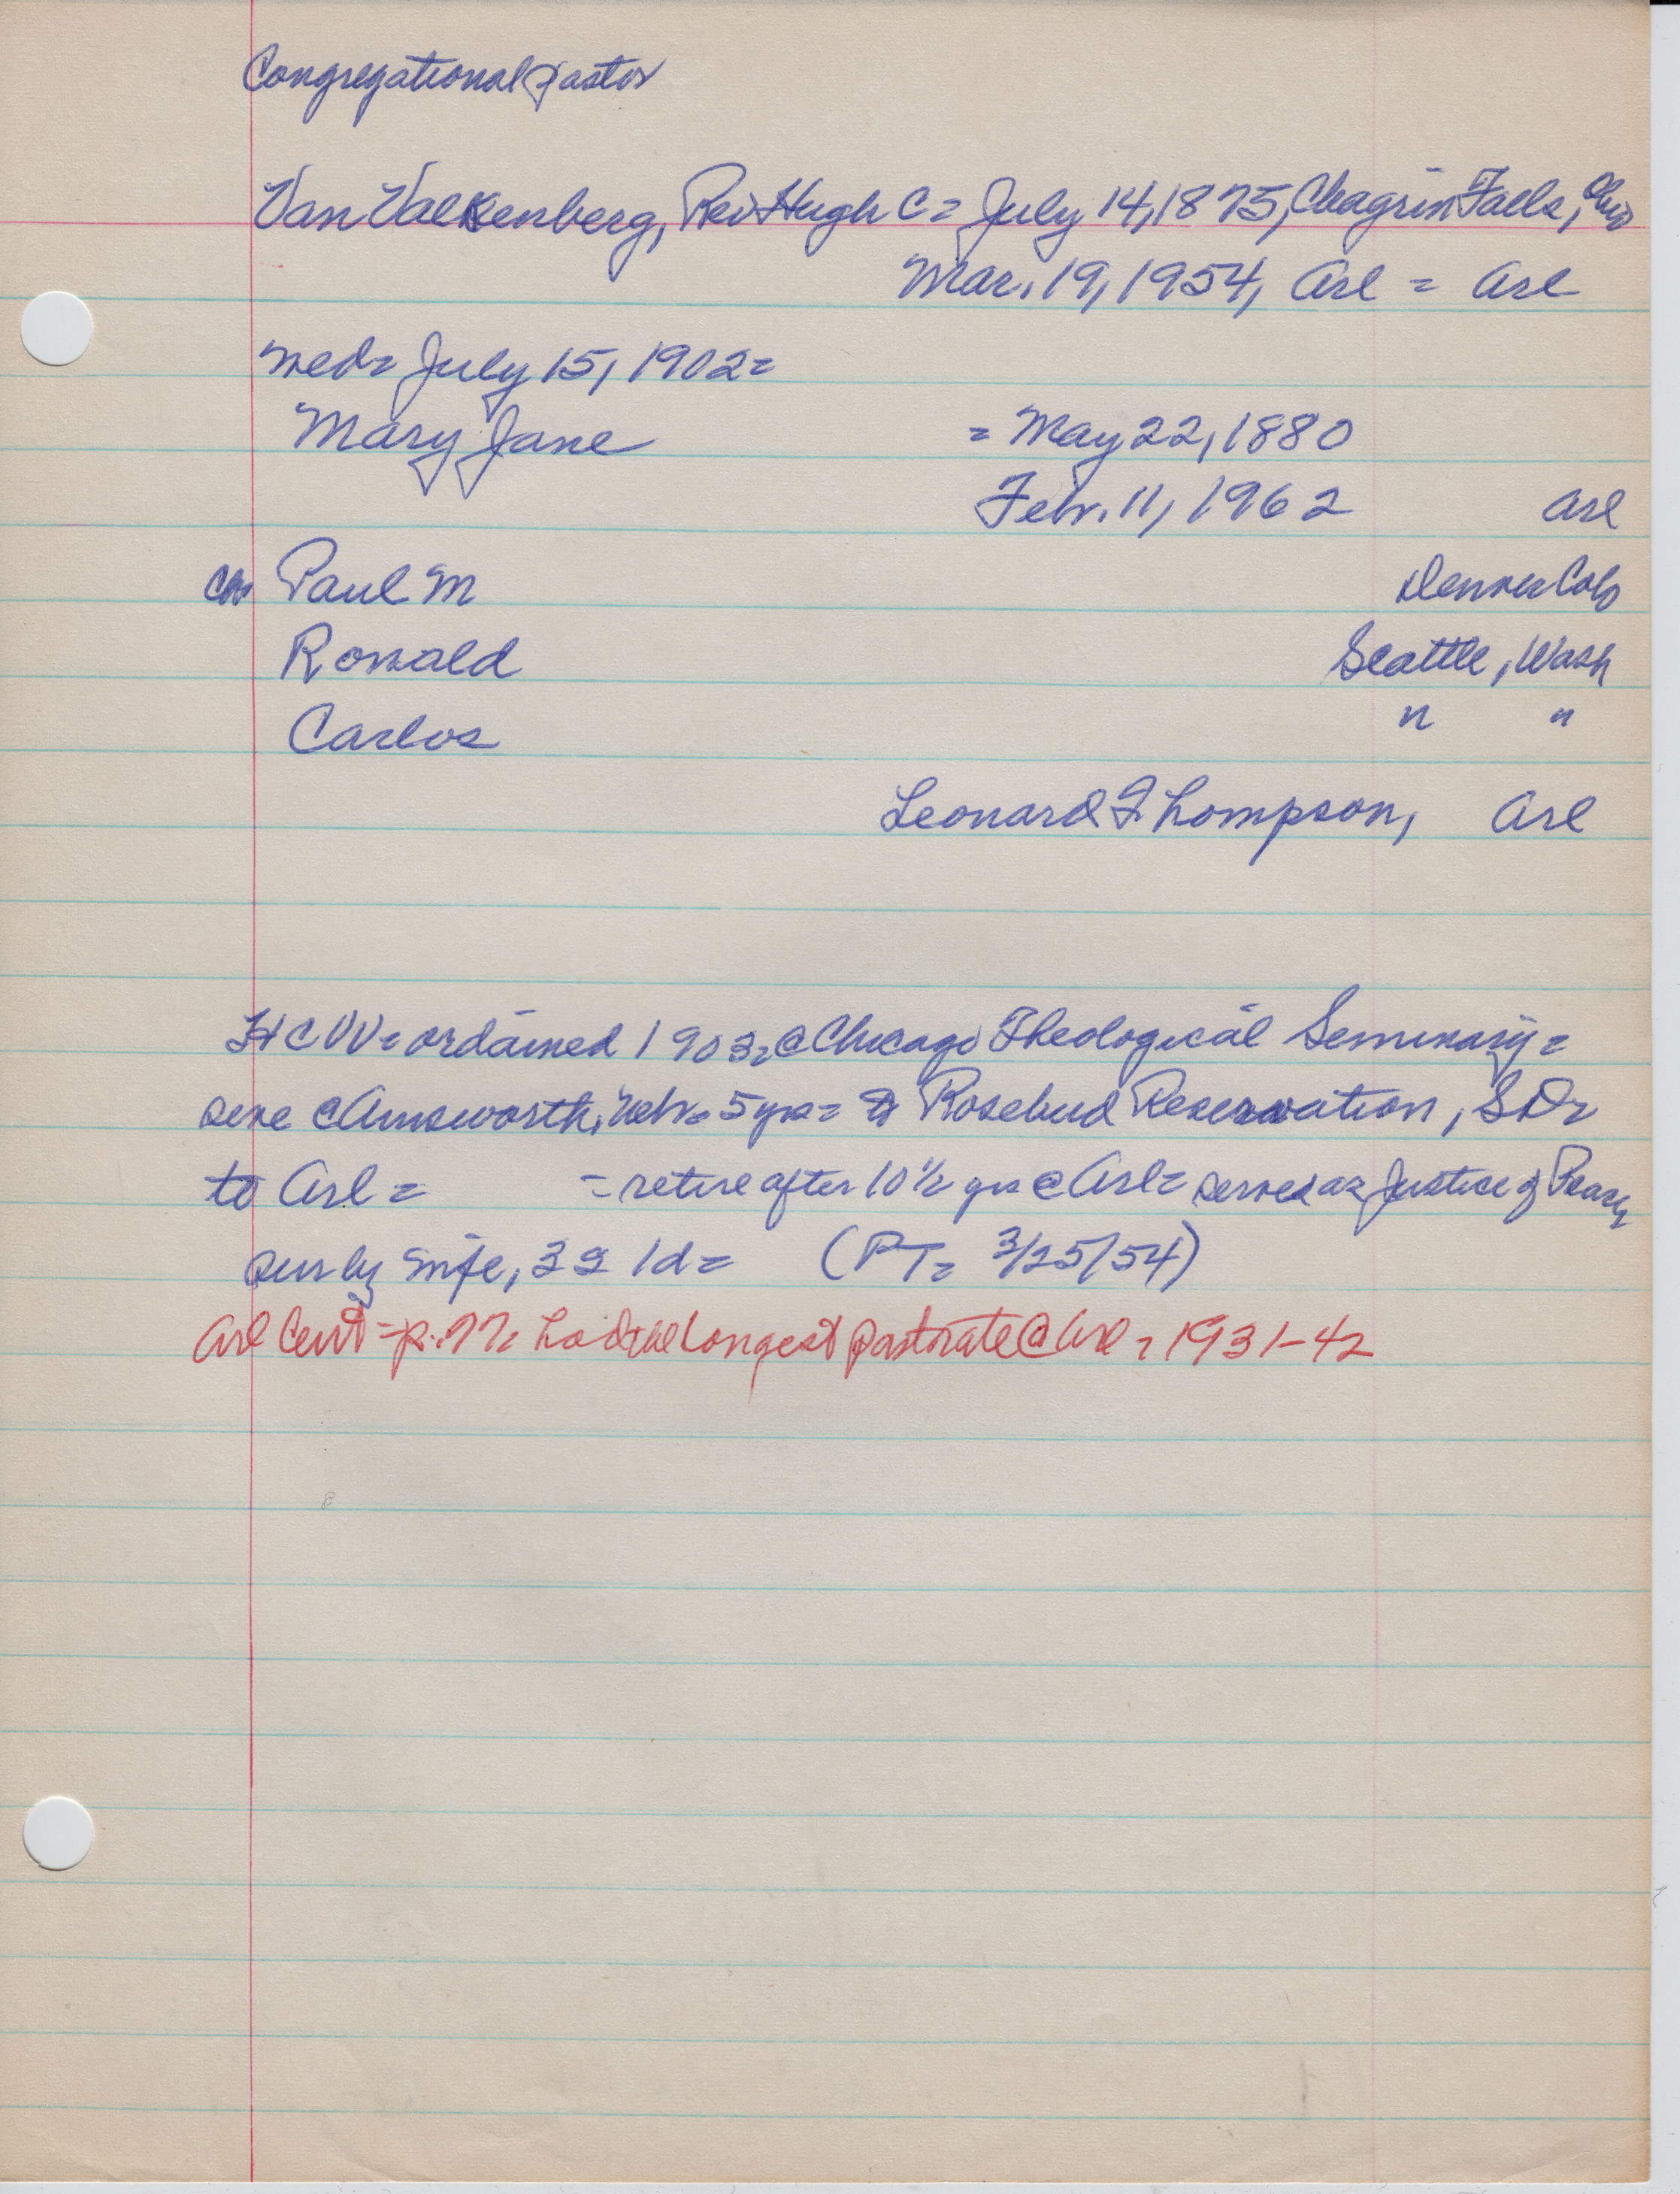 Congregational Pastor
Van Valkenberg, Rev Hugh C = July 14, 1875, Chagrin Falls, Ohio
Mar. 19, 1954, Arl = Arl
wed = July 15, 1902 =
Mary Jane = May 22, 1880
Febr. 11, 1962 Arl
ch Paul M Denver Colo
Ronald Seattle, Wash
Carlos " "
Leonard Thompson, Arl
HCVV = ordained 1903 = @ Chicago Theological Seminary =
serve @ Ainsworth, Nebr = 5 yrs = Rosebud Reservation, SD =
to Arl = = retire after 10 1/2 yrs @ Arl = served as Justice of Peace
surv by wife, 3s 1d = (PT = 3/25/54)
Arl Cent = p. 77 = had the longest pastorate @ Arl = 1931-42